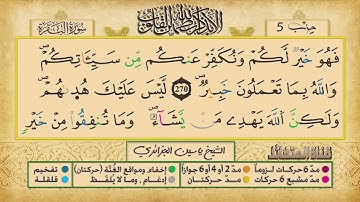 ألا بذكر الله تطمئن القلوب
سورة البقرة
حزب 5
فَهُوَ خَيْرٌ لَّكُمْ وَنُكَفِّرُ عَنكُم مِّن سَيِّـَٔاتِكُمْ
وَاللَّهُ بِمَا تَعْمَلُونَ خَبِيرٌ 270 لَيْسَ عَلَيْكَ هُدَىٰهُمْ
وَلَٰكِنَّ اللَّهَ يَهْدِے مَنْ يَّشَآءُ وَمَا تُنفِقُوا مِنْ خَيْرٍ
الشيخ ياسين الجزائري
مدّ 6 حركات لزوماً
مدّ 2 أو 4 أو 6 جوازاً
إخفاء، ومواقع الغُنَّة (حركتان)
تفخيم
مدّ مشبع 6 حركات
مدّ حركتان
إدغام، وما لا يُلفظ
قلقلة